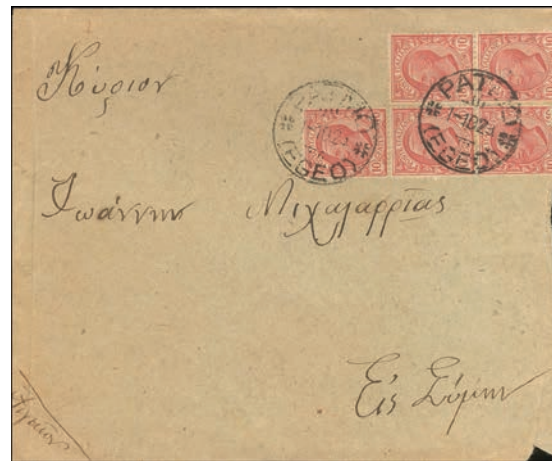 Κύριον
10
PATMO
(EGEO)
PATMO
(EGEO)
Ἰωάννην Μιχαλαρρίας
Εἰς Σύμην